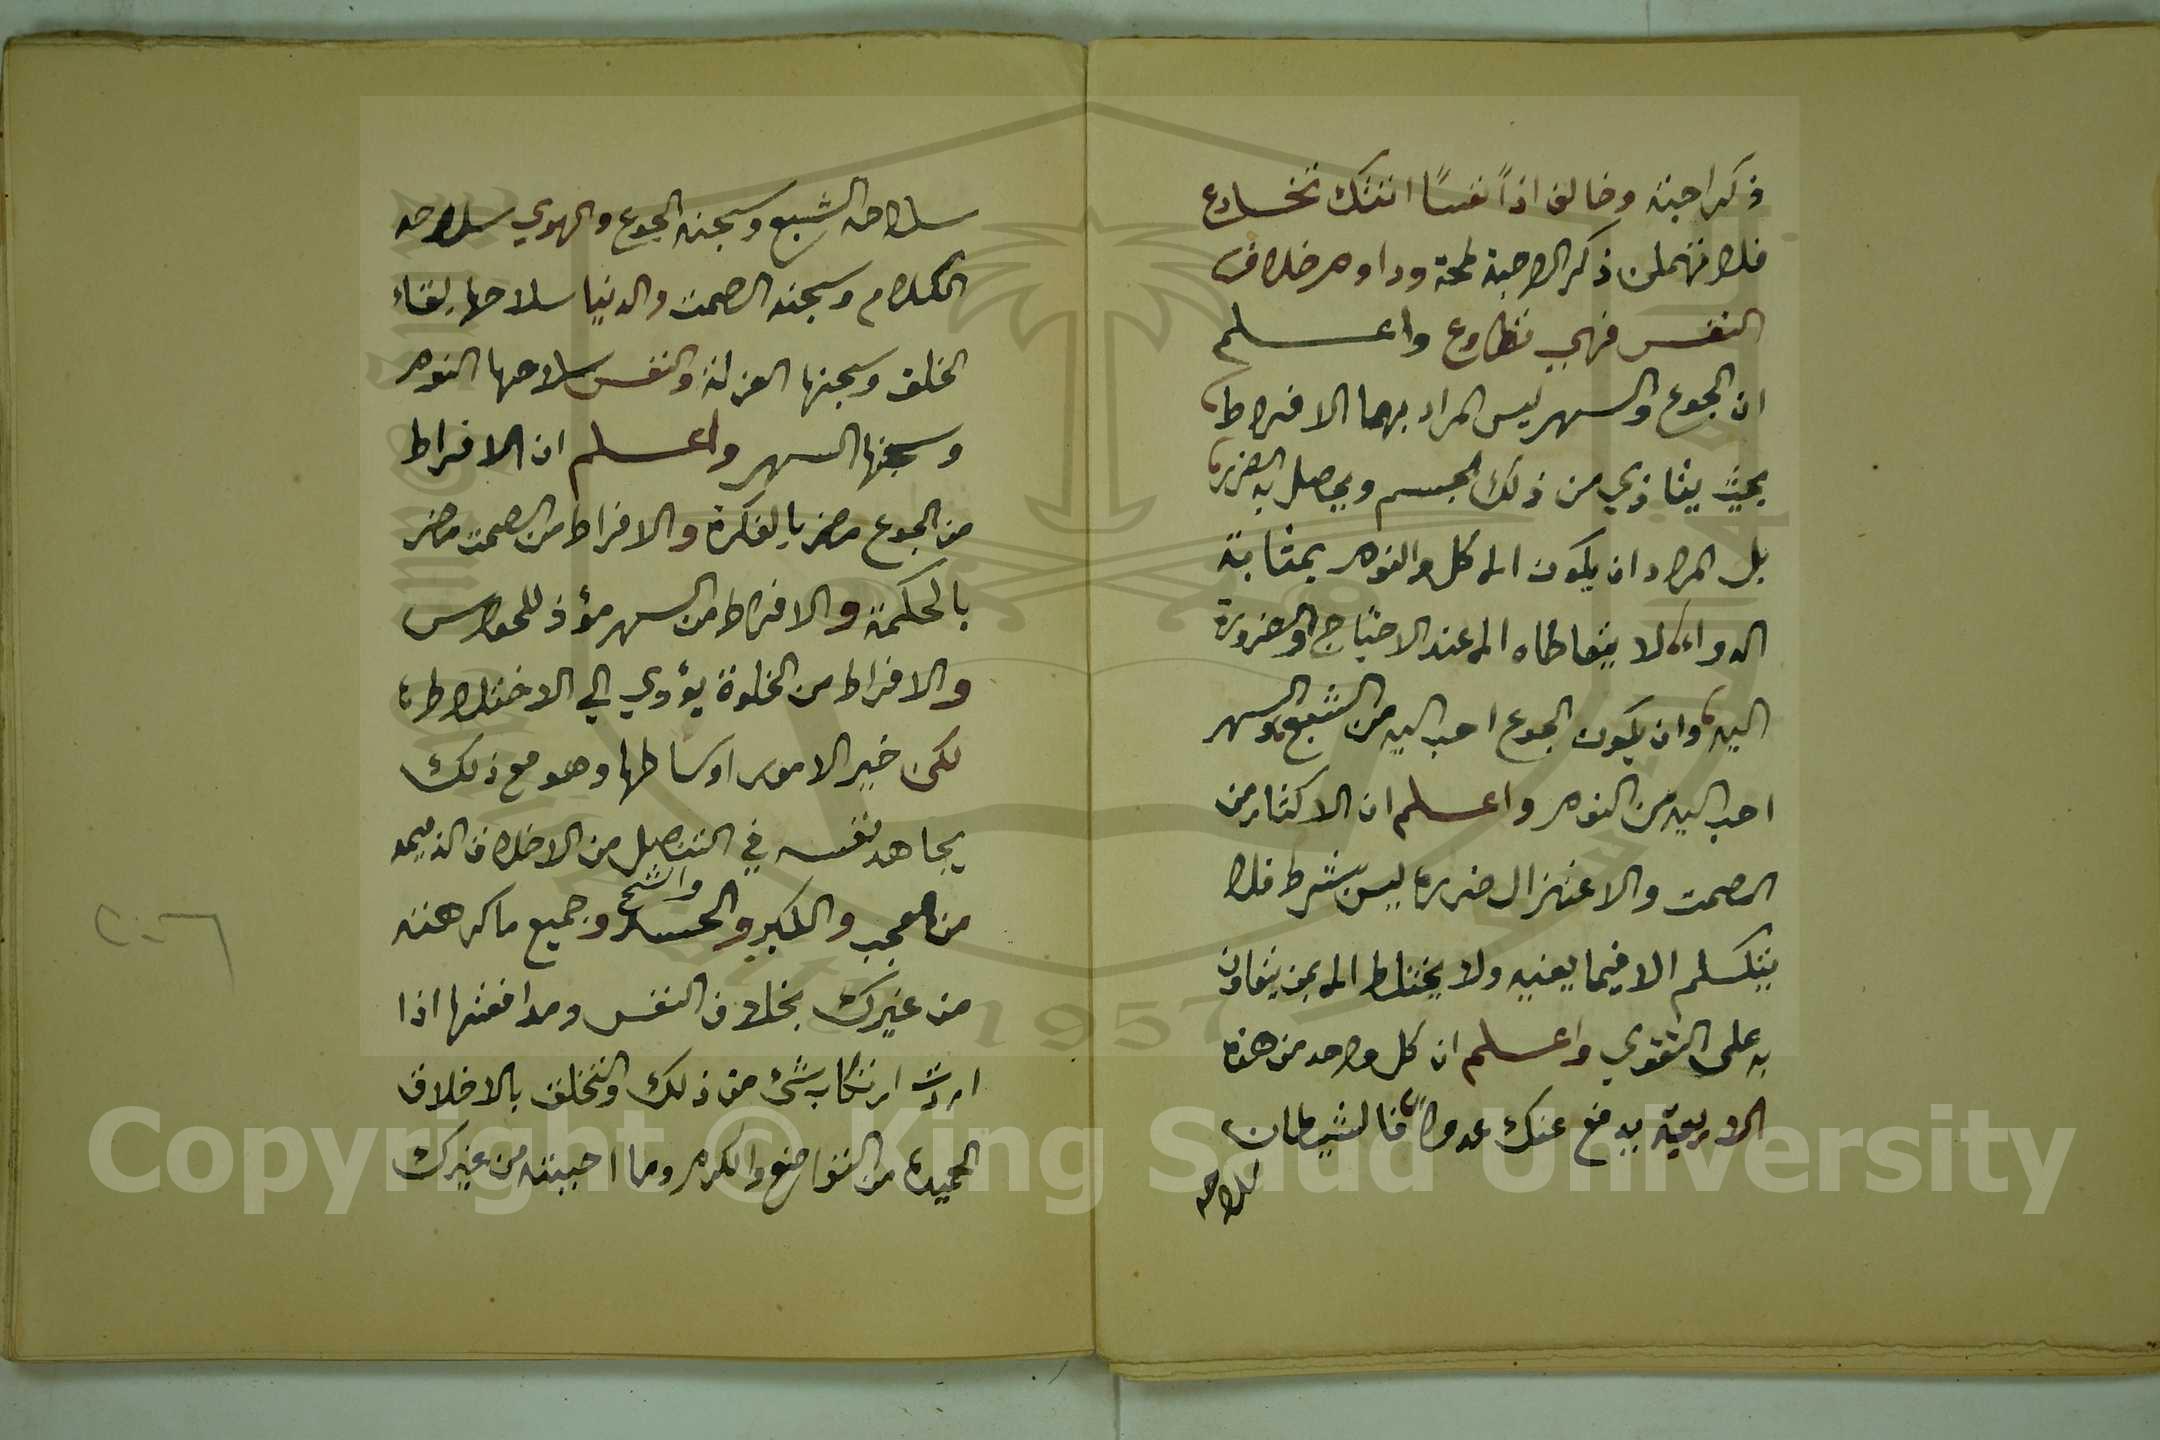 ذكر احبته وخالف اذاً نفسًا اتتك تخادع
فلا تهملن ذكر الاحبة لمحة وداوم خلاف
النفس فهي تطاوع واعلم
ان الجوع والسهر ليس المراد بهما الافراط
بحيث يتاذي من ذلك الجسم ويحصل به الضرر
بل المراد ان يكون الاكل والنوم بمثابة
الدواء لا يتعاطاه الا عند الاحتياج والضرورة
اليه وان يكون الجوع احب اليه من الشبع والسهر
احب اليه من النوم واعلم ان الاكثار من
الصمت والاعتزال ضرره ليس بشرط فلا
يتكلم الا فيما يعنيه ولا يختلط الا بمن يتعاون
به على التقوي واعلم ان كل واحد من هذه
الاربعة يدفع عنك عدوا فالشيطان
سلاحه
سلاحه الشبع وسجنه الجوع والهوي سلاحه
الكلام وسجنه الصمت والدنيا سلاحها لقاء
الخلق وسجنها العزلة والنفس سلاحها النوم
وسجنها السهر واعلم ان الافراط
من الجوع مضر بالفكرة والافراط من الصمت مضر
بالحكمة والافراط من السهر مؤذ للحواس
والافراط من الخلوة يؤدي الي الاختلاط
لكن خير الامور اوساطها وهو مع ذلك
يجاهد نفسه في التنصل من الاخلاق الذميمه
من العجب والكبر والحسد والشح وجميع ما كرهته
من غيرك بخلاف النفس ومدافعتها اذا
ارادت ارتكاب شئ من ذلك والتخلق بالاخلاق
الحميده من التواضع والكرم وما احببته من غيرك
1957
Copyright © King Saud University